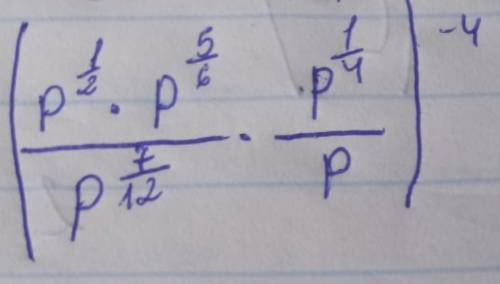 (p^{1/2} · p^{5/6} / p^{7/12} · p^{1/4} / p)^{-4}